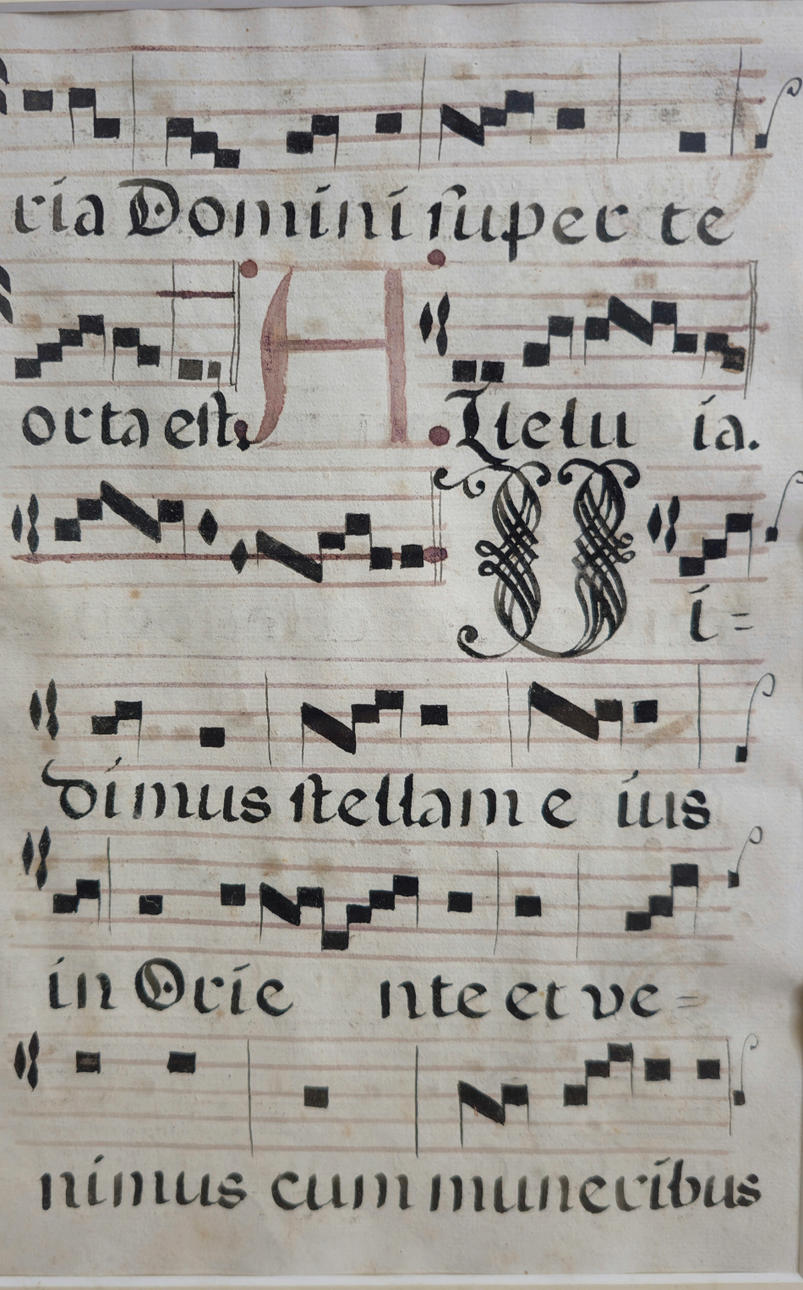 ria Domini super te
orta est. Alleluia.
Vi=
dimus stellam eius
in Oriente et ve=
nimus cum muneribus